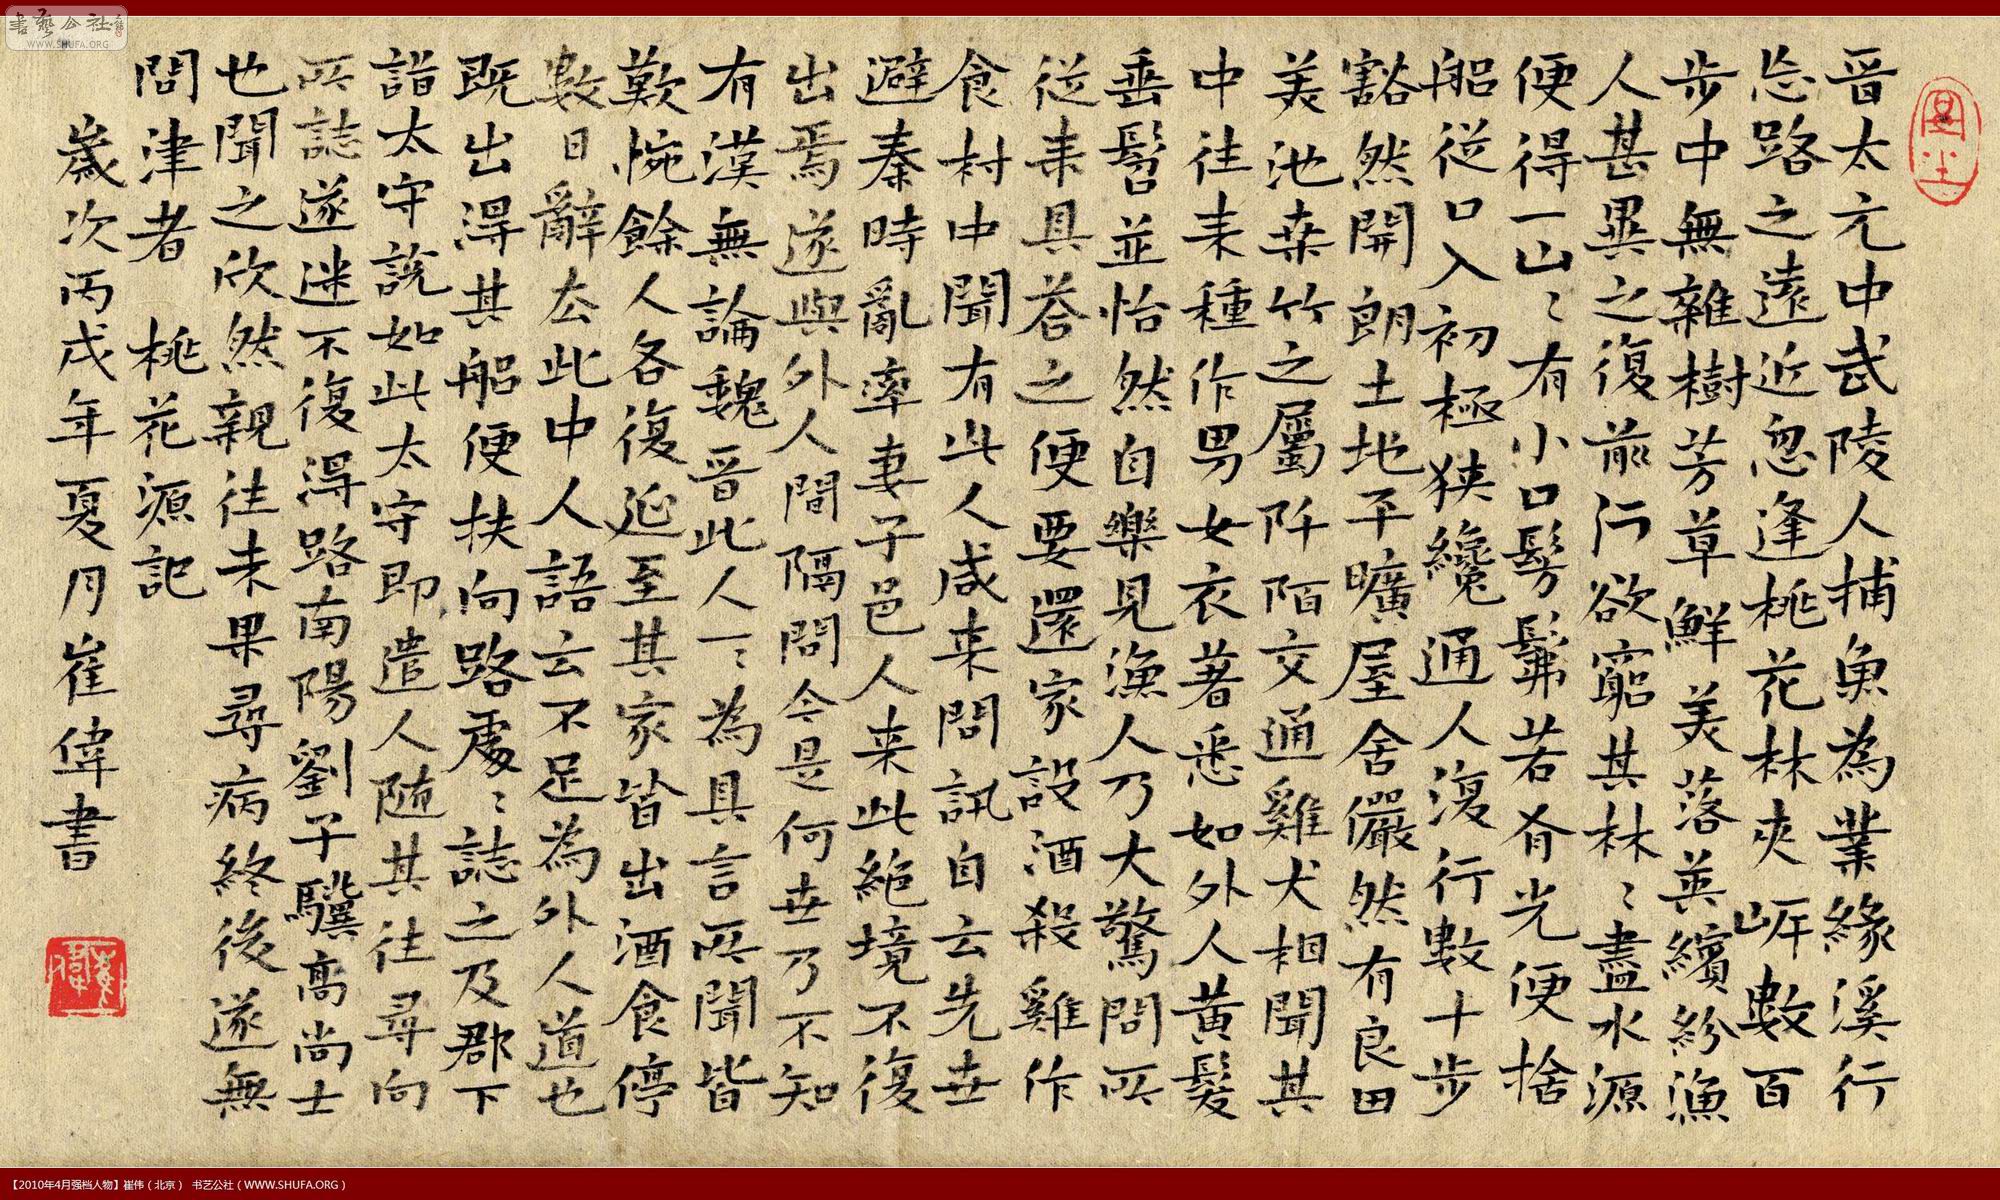 晉太元中武陵人捕魚為業緣溪行
忘路之遠近忽逢桃花林夾岸數百
步中無雜樹芳草鮮美落英繽紛漁
人甚異之復前行欲窮其林〻盡水源
便得一山〻有小口髣髴若有光便捨
船從口入初極狹纔通人復行數十步
豁然開朗土地平曠屋舍儼然有良田
美池桑竹之屬阡陌交通雞犬相聞其
中往来種作男女衣著悉如外人黃髮
垂髫並怡然自樂見漁人乃大驚問所
從来具荅之便要還家設酒殺雞作
食村中聞有此人咸来問訊自云先世
避秦時亂率妻子邑人来此絕境不復
出焉遂與外人間隔問今是何世乃不知
有漢無論魏晉此人一〻為具言所聞皆
歎惋餘人各復延至其家皆出酒食停
數日辭去此中人語云不足為外人道也
既出得其船便扶向路處〻誌之及郡下
詣太守說如此太守即遣人随其往尋向
所誌遂迷不復得路南陽劉子驥高尚士
也聞之欣然親往未果尋病終後遂無
問津者 桃花源記
歲次丙戌年夏月崔偉書
書藝公社
WWW.SHUFA.ORG
【2010年4月强档人物】崔伟（北京） 书艺公社（WWW.SHUFA.ORG）